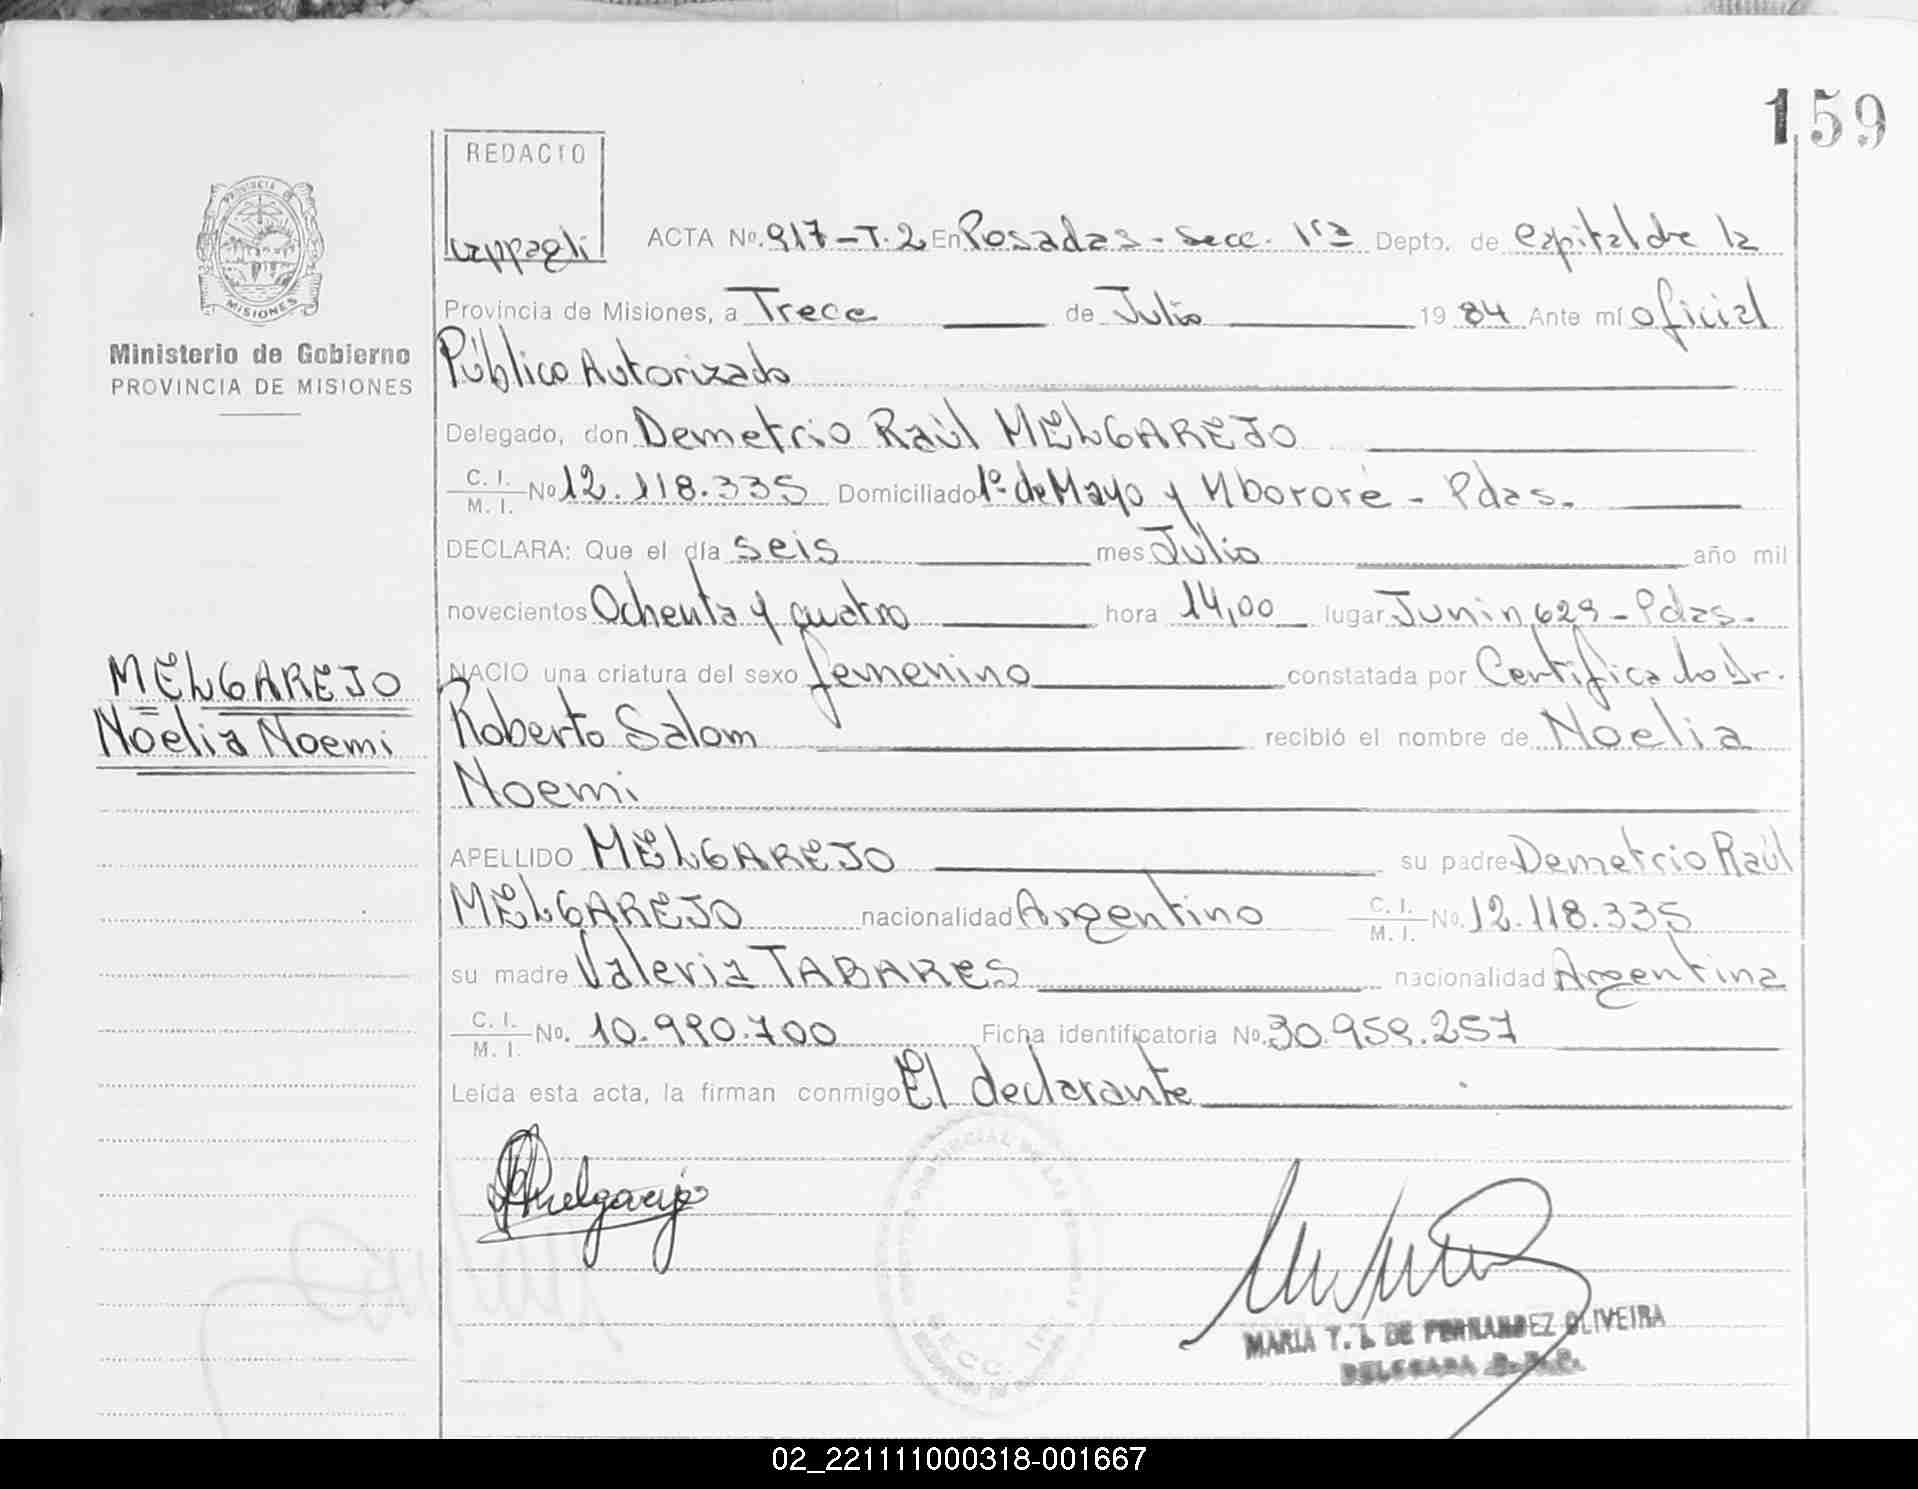 159
REDACTO
cappagli
PROVINCIA
MISIONES
Ministerio de Gobierno
PROVINCIA DE MISIONES
ACTA Nº. 917-T.2 En Posadas - Secc. 1ra Depto. de Capital de la
Provincia de Misiones, a Trece de Julio 1984 Ante mí Oficial
Público Autorizado
Delegado, don Demetrio Raúl MELGAREJO
C. I. / M. I. Nº 12.118.335 Domiciliado 1º de Mayo y Mbororé - Pdas.
DECLARA: Que el día seis mes Julio año mil
novecientos Ochenta y cuatro hora 14,00 lugar Junin 629 - Pdas.
MELGAREJO
Noelia Noemi
NACIO una criatura del sexo femenino constatada por Certificado Dr.
Roberto Salom recibió el nombre de Noelia
Noemi
APELLIDO MELGAREJO su padre Demetrio Raúl
MELGAREJO nacionalidad Argentino C. I. / M. I. Nº. 12.118.335
su madre Valeria TABARES nacionalidad Argentina
C. I. / M. I. Nº. 10.990.700 Ficha identificatoria Nº. 30.959.257
Leída esta acta, la firman conmigo El declarante
Melgarejo
SECC. 1ra
MARIA T. I. DE FERNANDEZ OLIVEIRA
DELEGADA
02_221111000318-001667